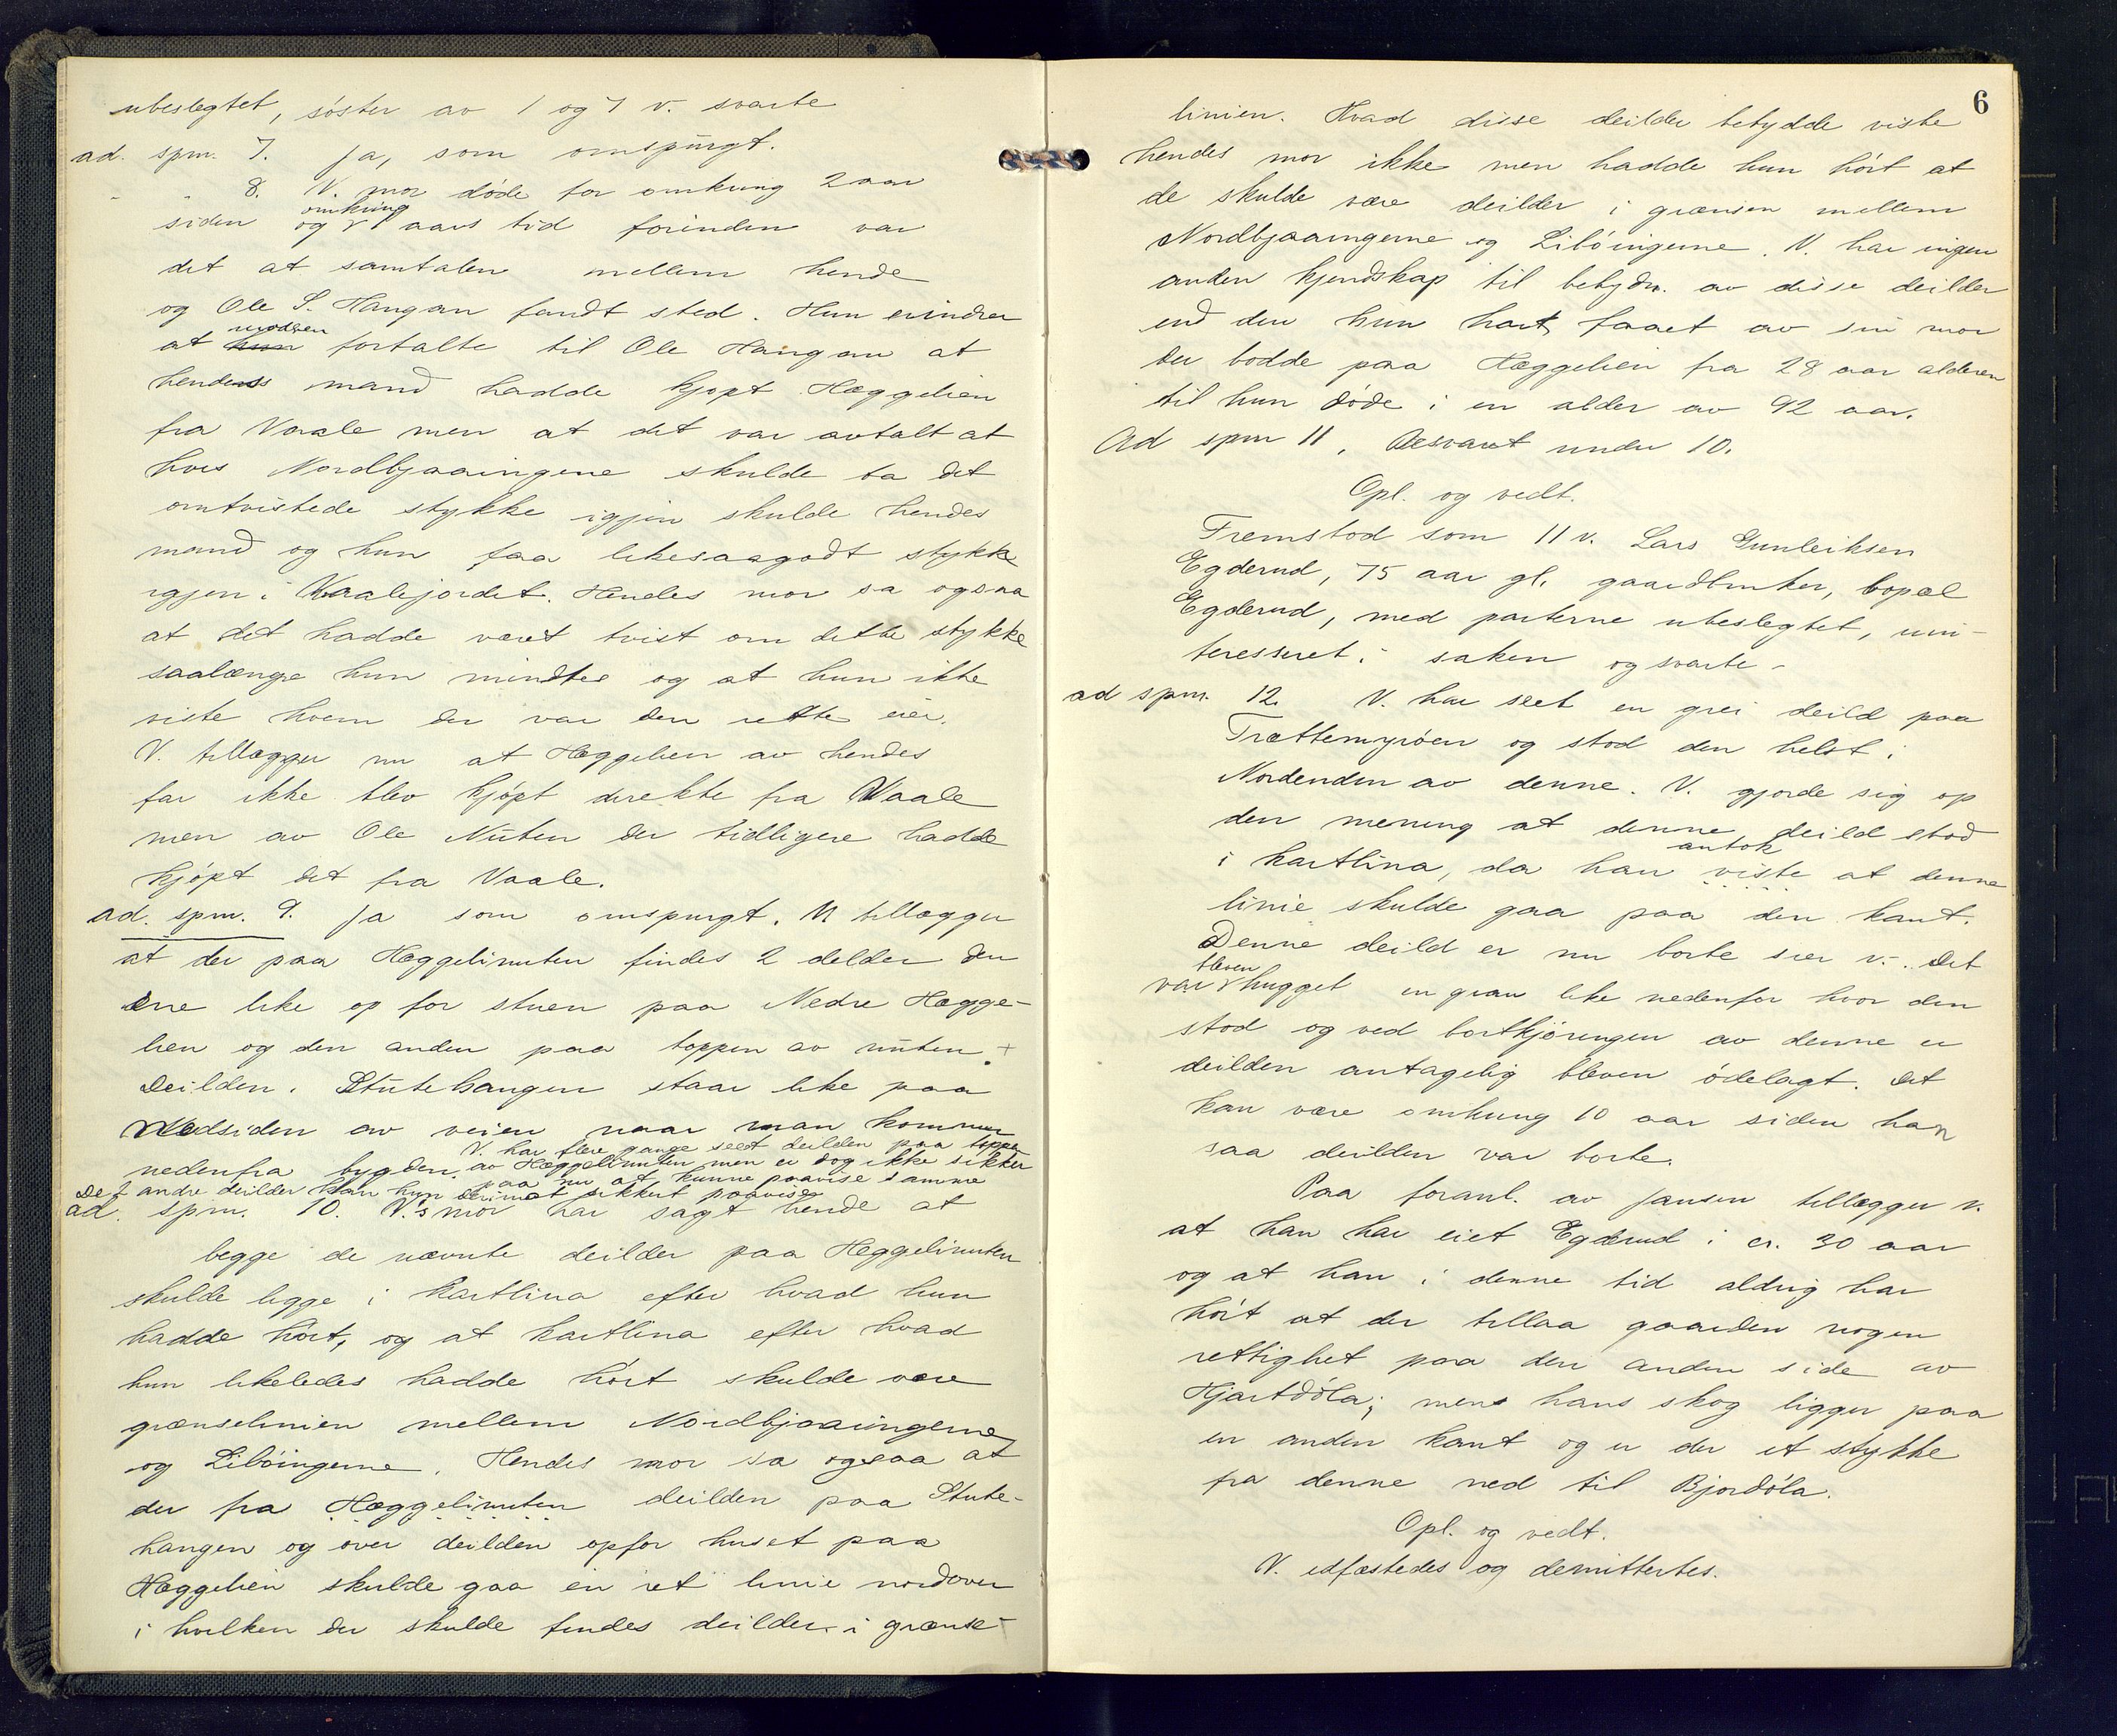 ubeslegtet, søster av 1 og 7 v. svarte
ad. spm. 7. Ja, som omspurgt.
" " 8. V. mor døde for omkring 2 aar
siden og omkring 1 aars tid forinden var
det at samtalen mellem hende
og Ole S. Haugan fandt sted. Hun erindrer
at moderen fortalte til Ole Haugan at
hendes mand hadde kjøpt Hæggelien
fra Vaale men at det var avtalt at
hvis Nordbjaaingene skulde ta det
omtvistede stykke igjen skulde hendes
mand og hun faa likesaagodt stykke
igjen i Vaalejordet. Hendes mor sa ogsaa
at det hadde været tvist om dette stykke
saalænge hun mindtes og at hun ikke
viste hvem der var den rette eier.
V. tillægger nu at Hæggelien av hendes
far ikke blev kjøpt direkte fra Vaale
men av Ole Nuten der tidligere hadde
kjøpt det fra Vaale.
ad. spm. 9. Ja som omspurgt. V. tillægger
at der paa Hæggelinuten findes 2 delder den
ene like op for stuen paa Nedre Hægge-
lien og den anden paa toppen av nuten. +
Deilden i Stutehaugen staar like paa
Nedsiden av veien naar man kommer
nedenfra bygden. V. har flere gange seet deilden paa toppen
av Hæggelinuten men er dog ikke sikker
paa nu at kunne paavise samme
De 2 andre deilder kan hun derimot sikkert paavise
ad. spm. 10. V.'s mor har sagt hende at
begge de nævnte deilder paa Hæggelinuten
skulde ligge i kartlina efter hvad hun
hadde hørt, og at kartlina efter hvad
hun likeledes hadde hørt skulde være
grænselinien mellem Nordbjaaingerne
og Libøingerne. Hendes mor sa ogsaa at
der fra Hæggelinuten deilden paa Stute-
haugen og over deilden opfor huset paa
Hæggelien skulde gaa en ret linie nordover
i hvilken der skulde findes deilder i grænse-
6
linien. Hvad disse deilder betydde viste
hendes mor ikke men hadde hun hørt at
de skulde være deilder i grænsen mellem
Nordbjaaingerne og Libøingerne. V. har ingen
anden kjendskap til betydn. av disse deilder
end den hun har faaet av sin mor
der bodde paa Hæggelien fra 28 aar alderen
til hun døde i en alder av 92 aar.
Ad spm 11, Besvaret under 10.
Opl. og vedt.
Fremstod som 11 v. Lars Gunleiksen
Egderud, 75 aar gl. gaardbruker, bopæl
Egderud, med parterne ubeslegtet, uin-
teresseret i saken og svarte -
ad spm. 12. V. har seet en grei deild paa
Trættemyrøen og stod den helst i
Nordenden av denne. V. gjorde sig op
den mening at denne deild stod
i kartlina, da han antok viste at denne
linie skulde gaa paa den kant.
Denne deild er nu borte sier v. Det
var bleven hugget en gran like nedenfor hvor den
stod og ved bortkjøringen av denne er
deilden antagelig bleven ødelagt. Det
kan være omkring 10 aar siden han
saa deilden var borte.
Paa foranl. av Jansen tillægger v.
at han har eiet Egderud i cr. 30 aar
og at han i denne tid aldrig har
hørt at der tillaa gaarden nogen
rettighet paa den anden side av
Hjartdøla; mens hans skog ligger paa
en anden kant og er der et stykke
fra denne ned til Bjordøla.
Opl. og vedt.
V. edfæstedes og demittertes.